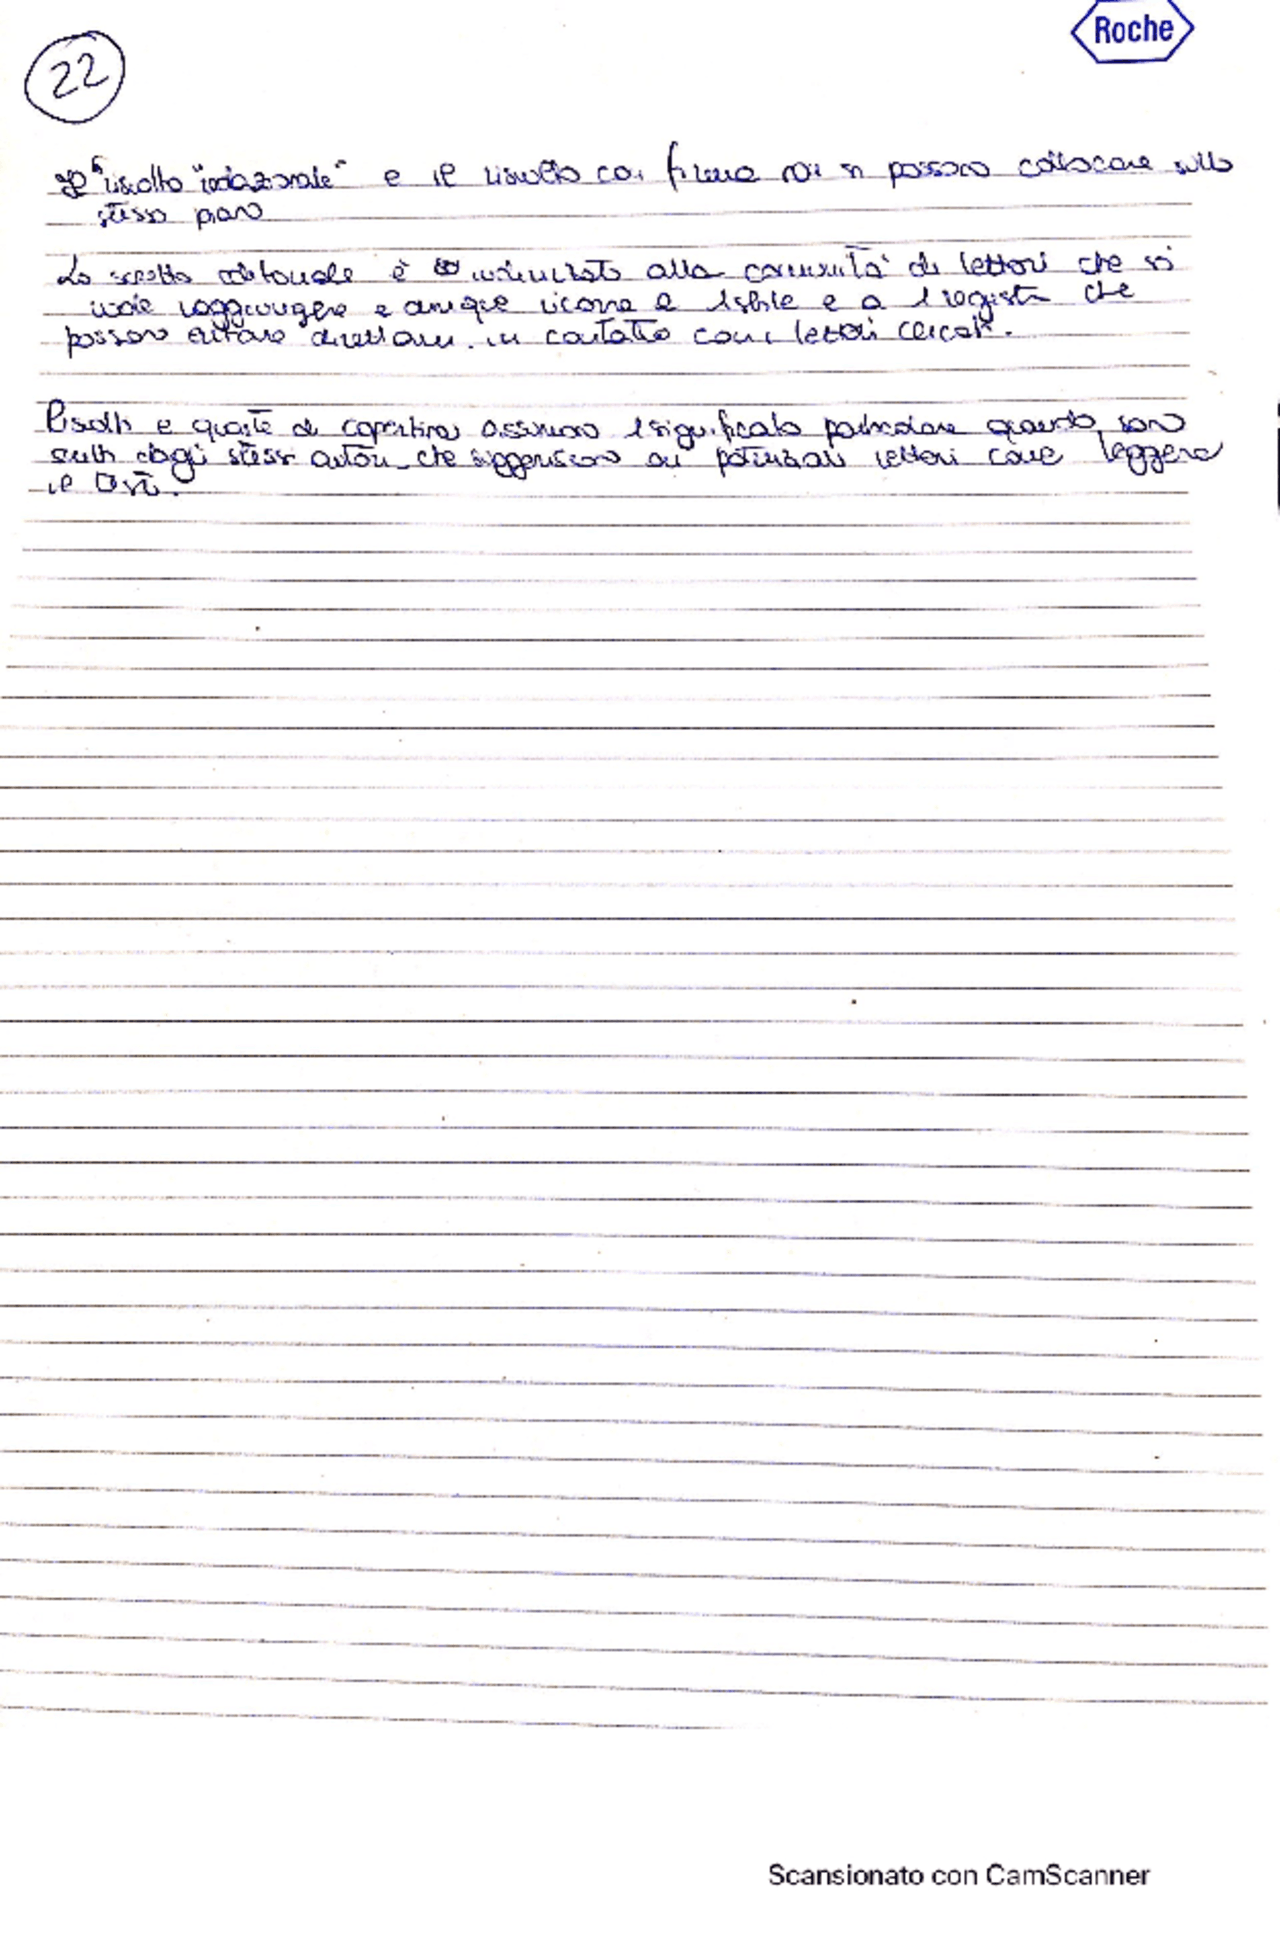 Roche
22
Il "risvolto "redazionale" e il risvolto con firma non si possono collocare sullo
stesso piano
La scelta editoriale è vincolata alla comunità di lettori che si
vuole raggiungere e dunque ricorre a 1 stile e a 1 registro che
possano entrare direttam. in contatto con i lettori cercati.
Risolti e quarte di copertina assumono 1 significato particolare quando sono
scritti dagli stessi autori che suggeriscono ai potenziali lettori come leggere
il
Scansionato con CamScanner